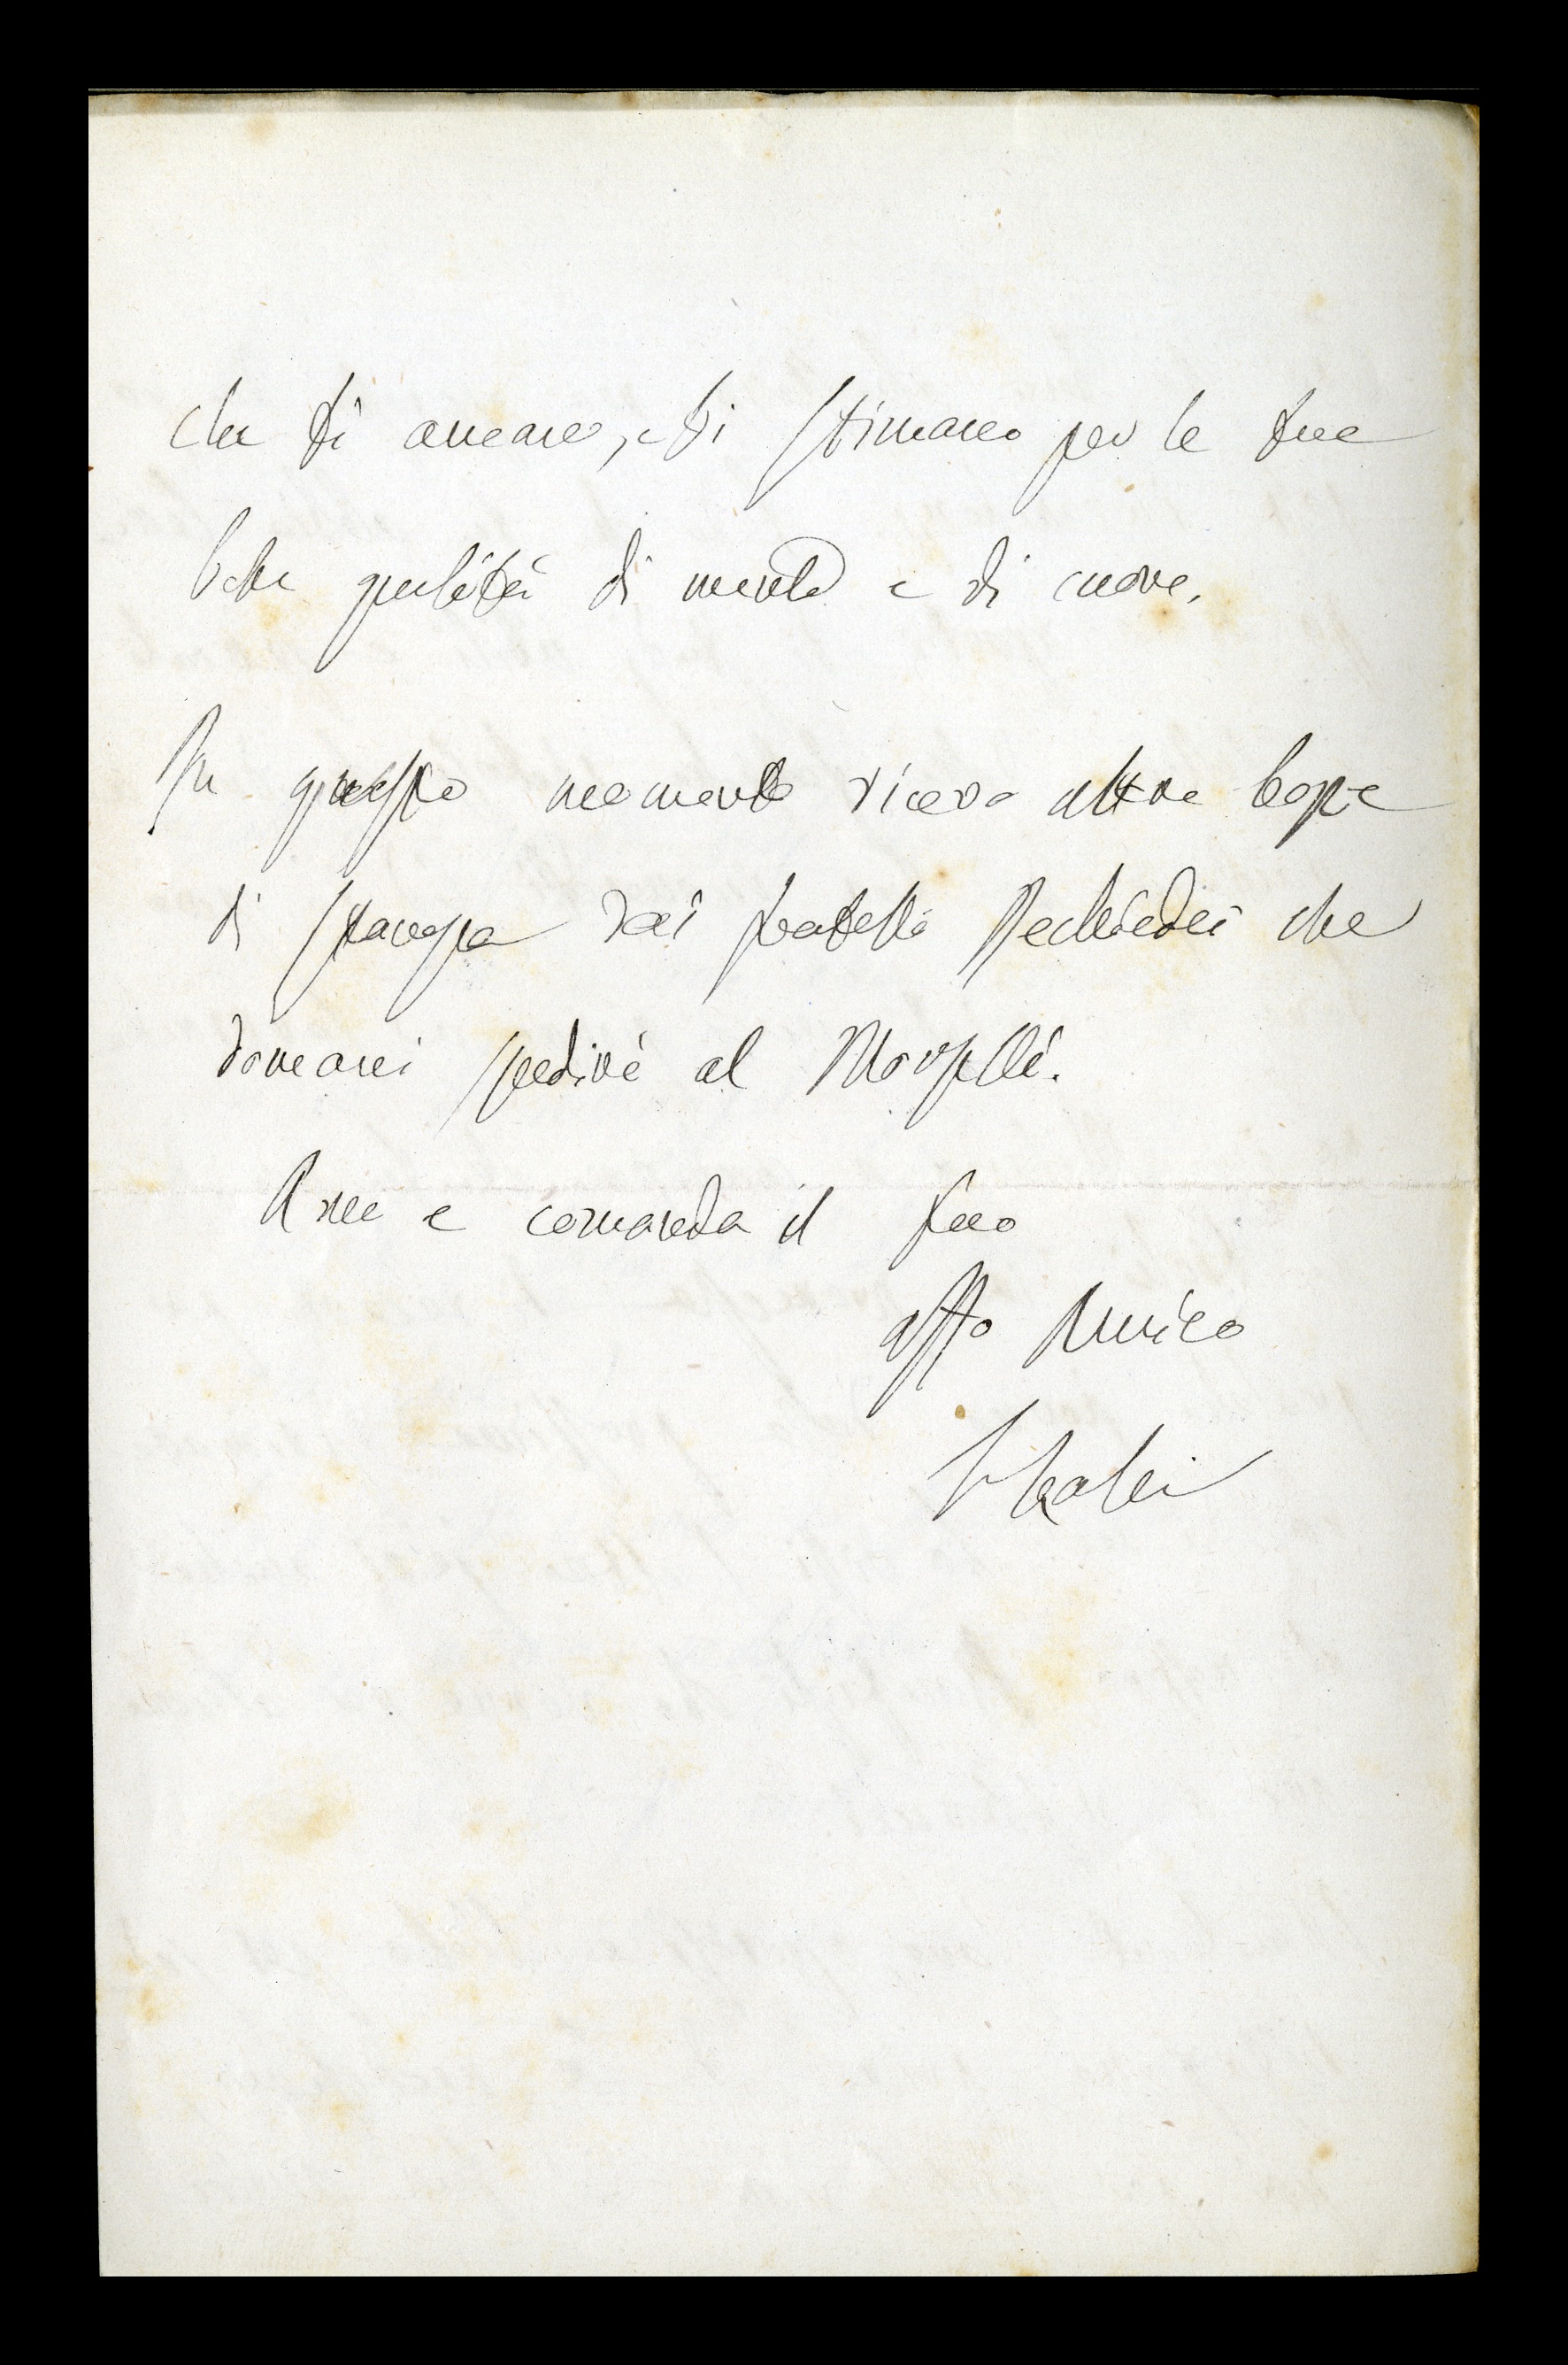 che ti amano, e ti stimano per le tue
belle qualità di mente e di cuore.
In questo momento ricevo altre bozze
di stampa dai fratelli Rechiedei che
domani spedirò al Morselli.
Ama e comanda il tuo
affo Amico